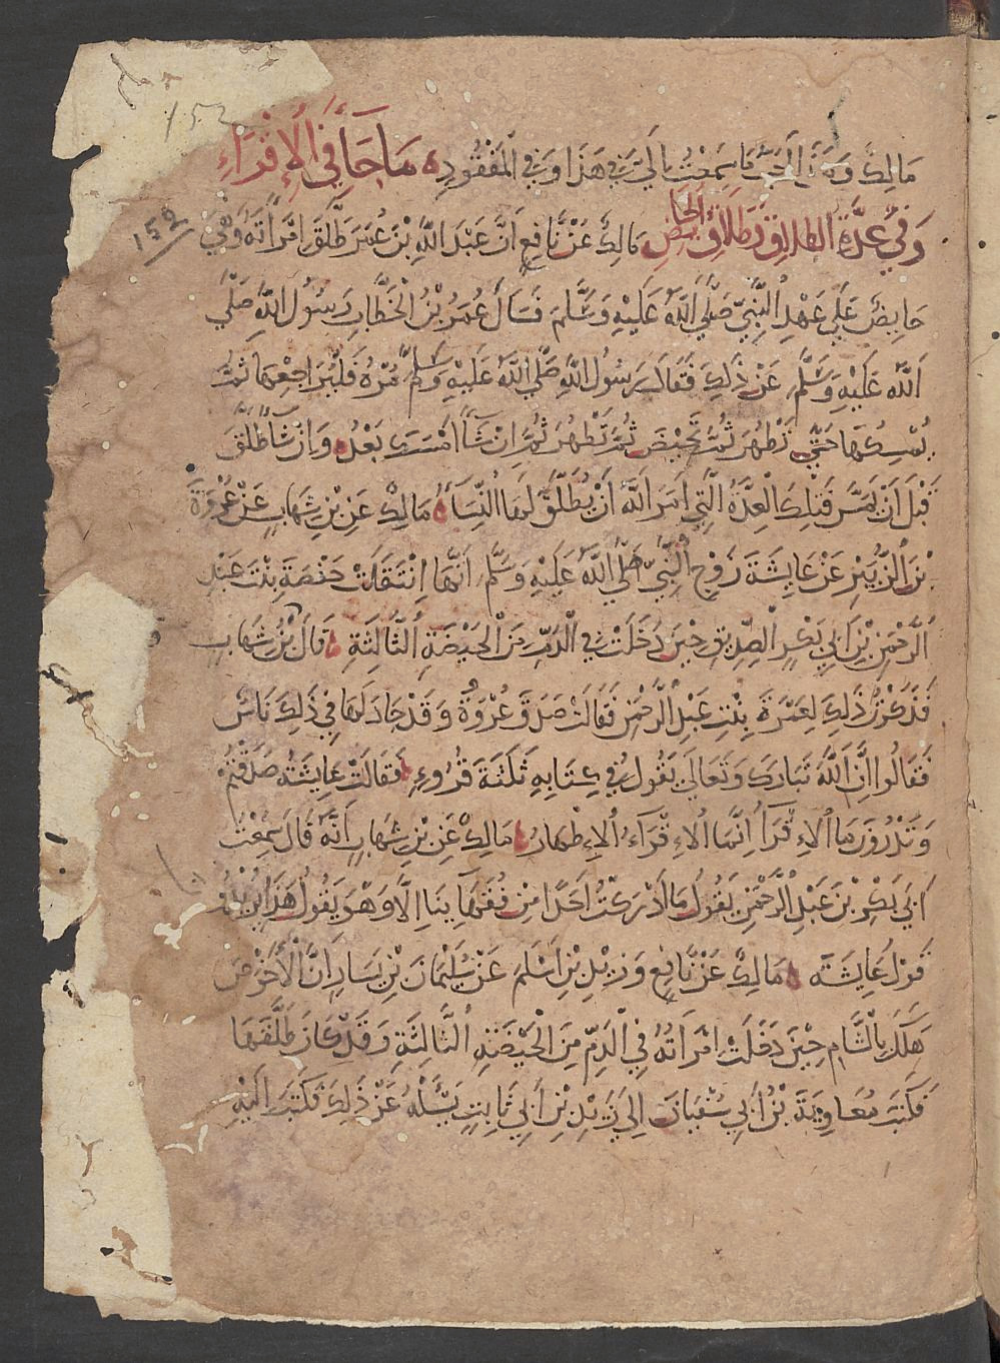 152
مَالِكٌ وَهَذَا أَحَبُّ مَا سَمِعْتُ إِلَيَّ فِي هَذَا وَفِي الْمَفْقُودِ ه مَا جَاءَ فِي الْإِقْرَاءِ
وَفِي عِدَّةِ الطَّلَاقِ وَطَلَاقِ الْحَايِضِ مَالِكٌ عَنْ نَّافِعٍ أَنَّ عَبْدَ اللَّهِ بْنَ عُمَرَ طَلَّقَ امْرَأَتَهُ وَهْيَ
152
حَايِضٌ عَلَى عَهْدِ النَّبِيِّ صَلَّى اللَّهُ عَلَيْهِ وَسَلَّمَ فَسَأَلَ عُمَرُ بْنُ الْخَطَّابِ رَسُولَ اللَّهِ صَلَّى
اللَّهُ عَلَيْهِ وَسَلَّمَ عَنْ ذَلِكَ فَقَالَ رَسُولُ اللَّهِ صَلَّى اللَّهُ عَلَيْهِ وَسَلَّمَ مُرْهُ فَلْيُرَاجِعْهَا ثُمَّ
يُمْسِكْهَا حَتَّى تَطْهُرَ ثُمَّ تَحِيْضَ ثُمَّ تَطْهُرَ ثُمَّ إِنْ شَاءَ امْسَكَ بَعْدُ وَإِنْ شَاءَ طَلَّقَ
قَبْلَ أَنْ يَمَسَّ فَتِلْكَ الْعِدَّةُ الَّتِي أَمَرَ اللَّهُ أَنْ يُطَلَّقَ لَهَا النِّسَاءُ ه مَالِكٌ عَنِ بْنِ شِهَابٍ عَنْ عُرْوَةَ
بْنِ الزُّبَيْرِ عَنْ عَايِشَةَ زَوْجِ النَّبِيِّ صَلَّى اللَّهُ عَلَيْهِ وَسَلَّمَ أَنَّهَا انْتَقَلَتْ حَفْصَةَ بِنْتَ عَبْدِ
الرَّحْمَنِ بْنِ أَبِي بَكْرٍ الصِّدِّيقِ حِيْنَ دَخَلَتْ فِي الدَّمِ مِنَ الْحَيْضَةِ الثَّالِثَةِ ه قَالَ بْنُ شِهَابٍ
فَذَكَرْتُ ذَلِكَ لِعَمْرَةَ بِنْتِ عَبْدِ الرَّحْمَنِ فَقَالَتْ صَدَقَ عُرْوَةُ وَقَدْ جَادَلَهَا فِي ذَلِكَ نَاسٌ
فَقَالُوا إِنَّ اللَّهَ تَبَارَكَ وَتَعَالَى يَقُولُ فِي كِتَابِهِ ثَلَثَةَ قُرُوءٍ فَقَالَتْ عَايِشَةُ صَدَقْتُمْ
وَتَدْرُونَ مَا الْإِقْرَأُ إِنَّمَا الْإِقْرَاءُ الْإِطْهَارُ ه مَالِكٌ عَنِ بْنِ شِهَابٍ أَنَّهُ قَالَ سَمِعْتُ
أَبَى بَكْرِ بْنَ عَبْدِ الرَّحْمَنِ يَقُولُ مَا أَدْرَكْتُ أَحَدًا مِنْ فُقَهَايِنَا إِلَّا وَهْوَ يَقُولُ هَذَا يُرِيْدُ
قَوْلَ عَايِشَةَ ه مَالِكٌ عَنْ نَّافِعٍ وَزَيْدِ بْنِ أَسْلَمَ عَنْ سُلَيْمَانَ بْنِ يَسَارٍ أَنَّ الْأَحْوَصَ
هَلَكَ بِالشَّامِ حِيْنَ دَخَلَتْ امْرَأَتُهُ فِي الدَّمِ مِنَ الْحَيْضَةِ الثَّالِثَةِ وَقَدْ كَانَ طَلَّقَهَا
فَكَتَبَ مُعَاوِيَةُ بْنُ أَبِي سُفْيَانَ إِلَى زَيْدِ بْنِ أَبِي ثَابِتٍ يَسْئَلُهُ عَنْ ذَلِكَ فَكَتَبَ إِلَيْهِ